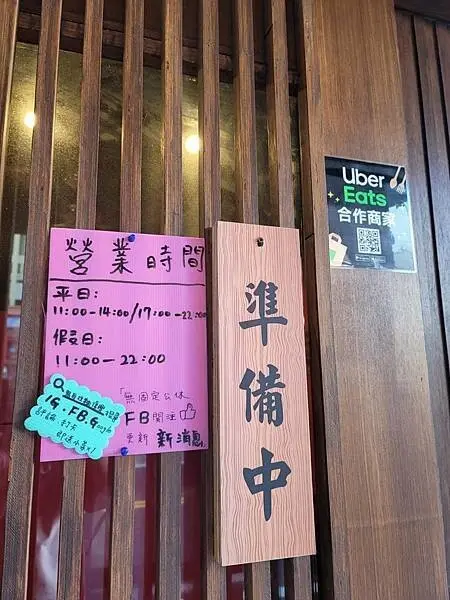 營業時間
平日:
11:00-14:00/17:00-22:00
假發日:
11:00-22:00
「無固定公休
FB關注
更新 新消息
IG.FB.Google
評論 打卡
即送小菜x1
準備中
Uber
Eats
合作商家